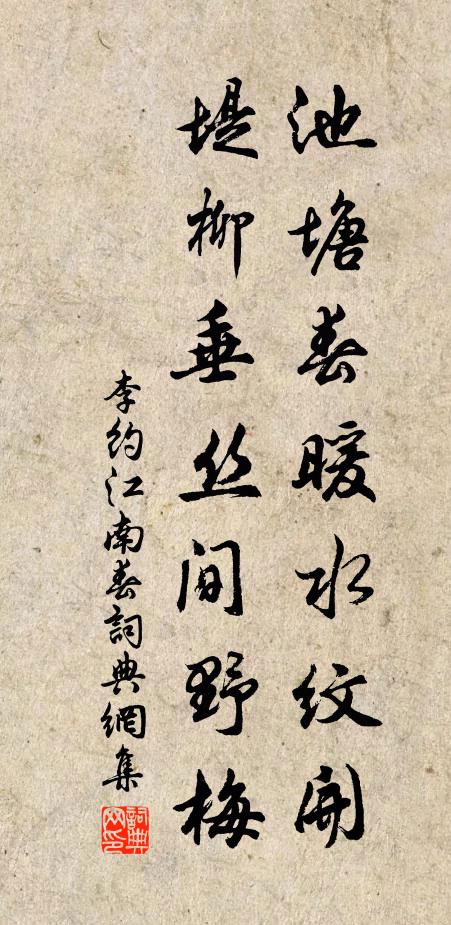 池塘春暖水纹开
堤柳垂丝间野梅
李约江南春詞典網集
詞典网印